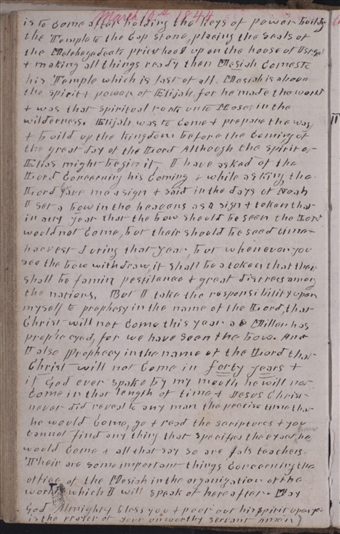 March 10th 1844
is to come afterwards having the keys of power building
the Temple to the Cap Stone, placing the seals of
the Melchezedeck priesthood upon the house of Israel
& making all things ready then Mesiah comes to
his Temple which is last of all. Mesiah is above
the spirit & power of Elijah, for he made the world
& was that spiritual rock unto Moses in the
wilderness. Elijah was to come & prepare the way
& build up the kingdom before the coming of
the great day of the Lord Although the spirit of
Elias might begin it. I have asked of the
Lord concerning his coming & while asking the
Lord gave me a sign & said in the days of Noah
I set a bow in the heavens as a sign & token that
in any year that the bow should be seen the Lord
would not come, but their should be seed time &
harvest During that year, but whenever you
see the bow withdraw, it shall be a token that their
shall be famin pestilence & great distress among
the nations, But I take the responsibility upon
myself to prophesy in the name of the Lord, that
Christ will not come this year as Miller has
prophesyed, for we have seen the bow. And
I also Prophecy in the name of the Lord that
Christ will not Come in forty years &
if God ever spake by my mouth he will not
Come in that length of time & Jesus Christ
never did reveal to any man the precise time that
he would Come, go & read the scriptures & you
cannot find any thing that specifes the exact he
would Come & all that say so are fals teachers.
Their are some important things concerning the
office of the Mesiah in the organization of the
world which I will speak of hereafter. May
God Almighty bless you & poor out his spirit upon you
is the prayer of your unworthy servant Amen